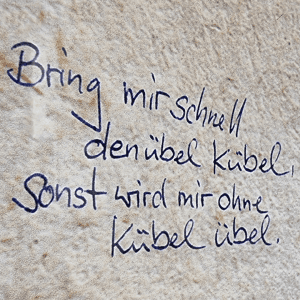 Bring mir schnell
den übel Kübel,
sonst wird mir ohne
Kübel übel.